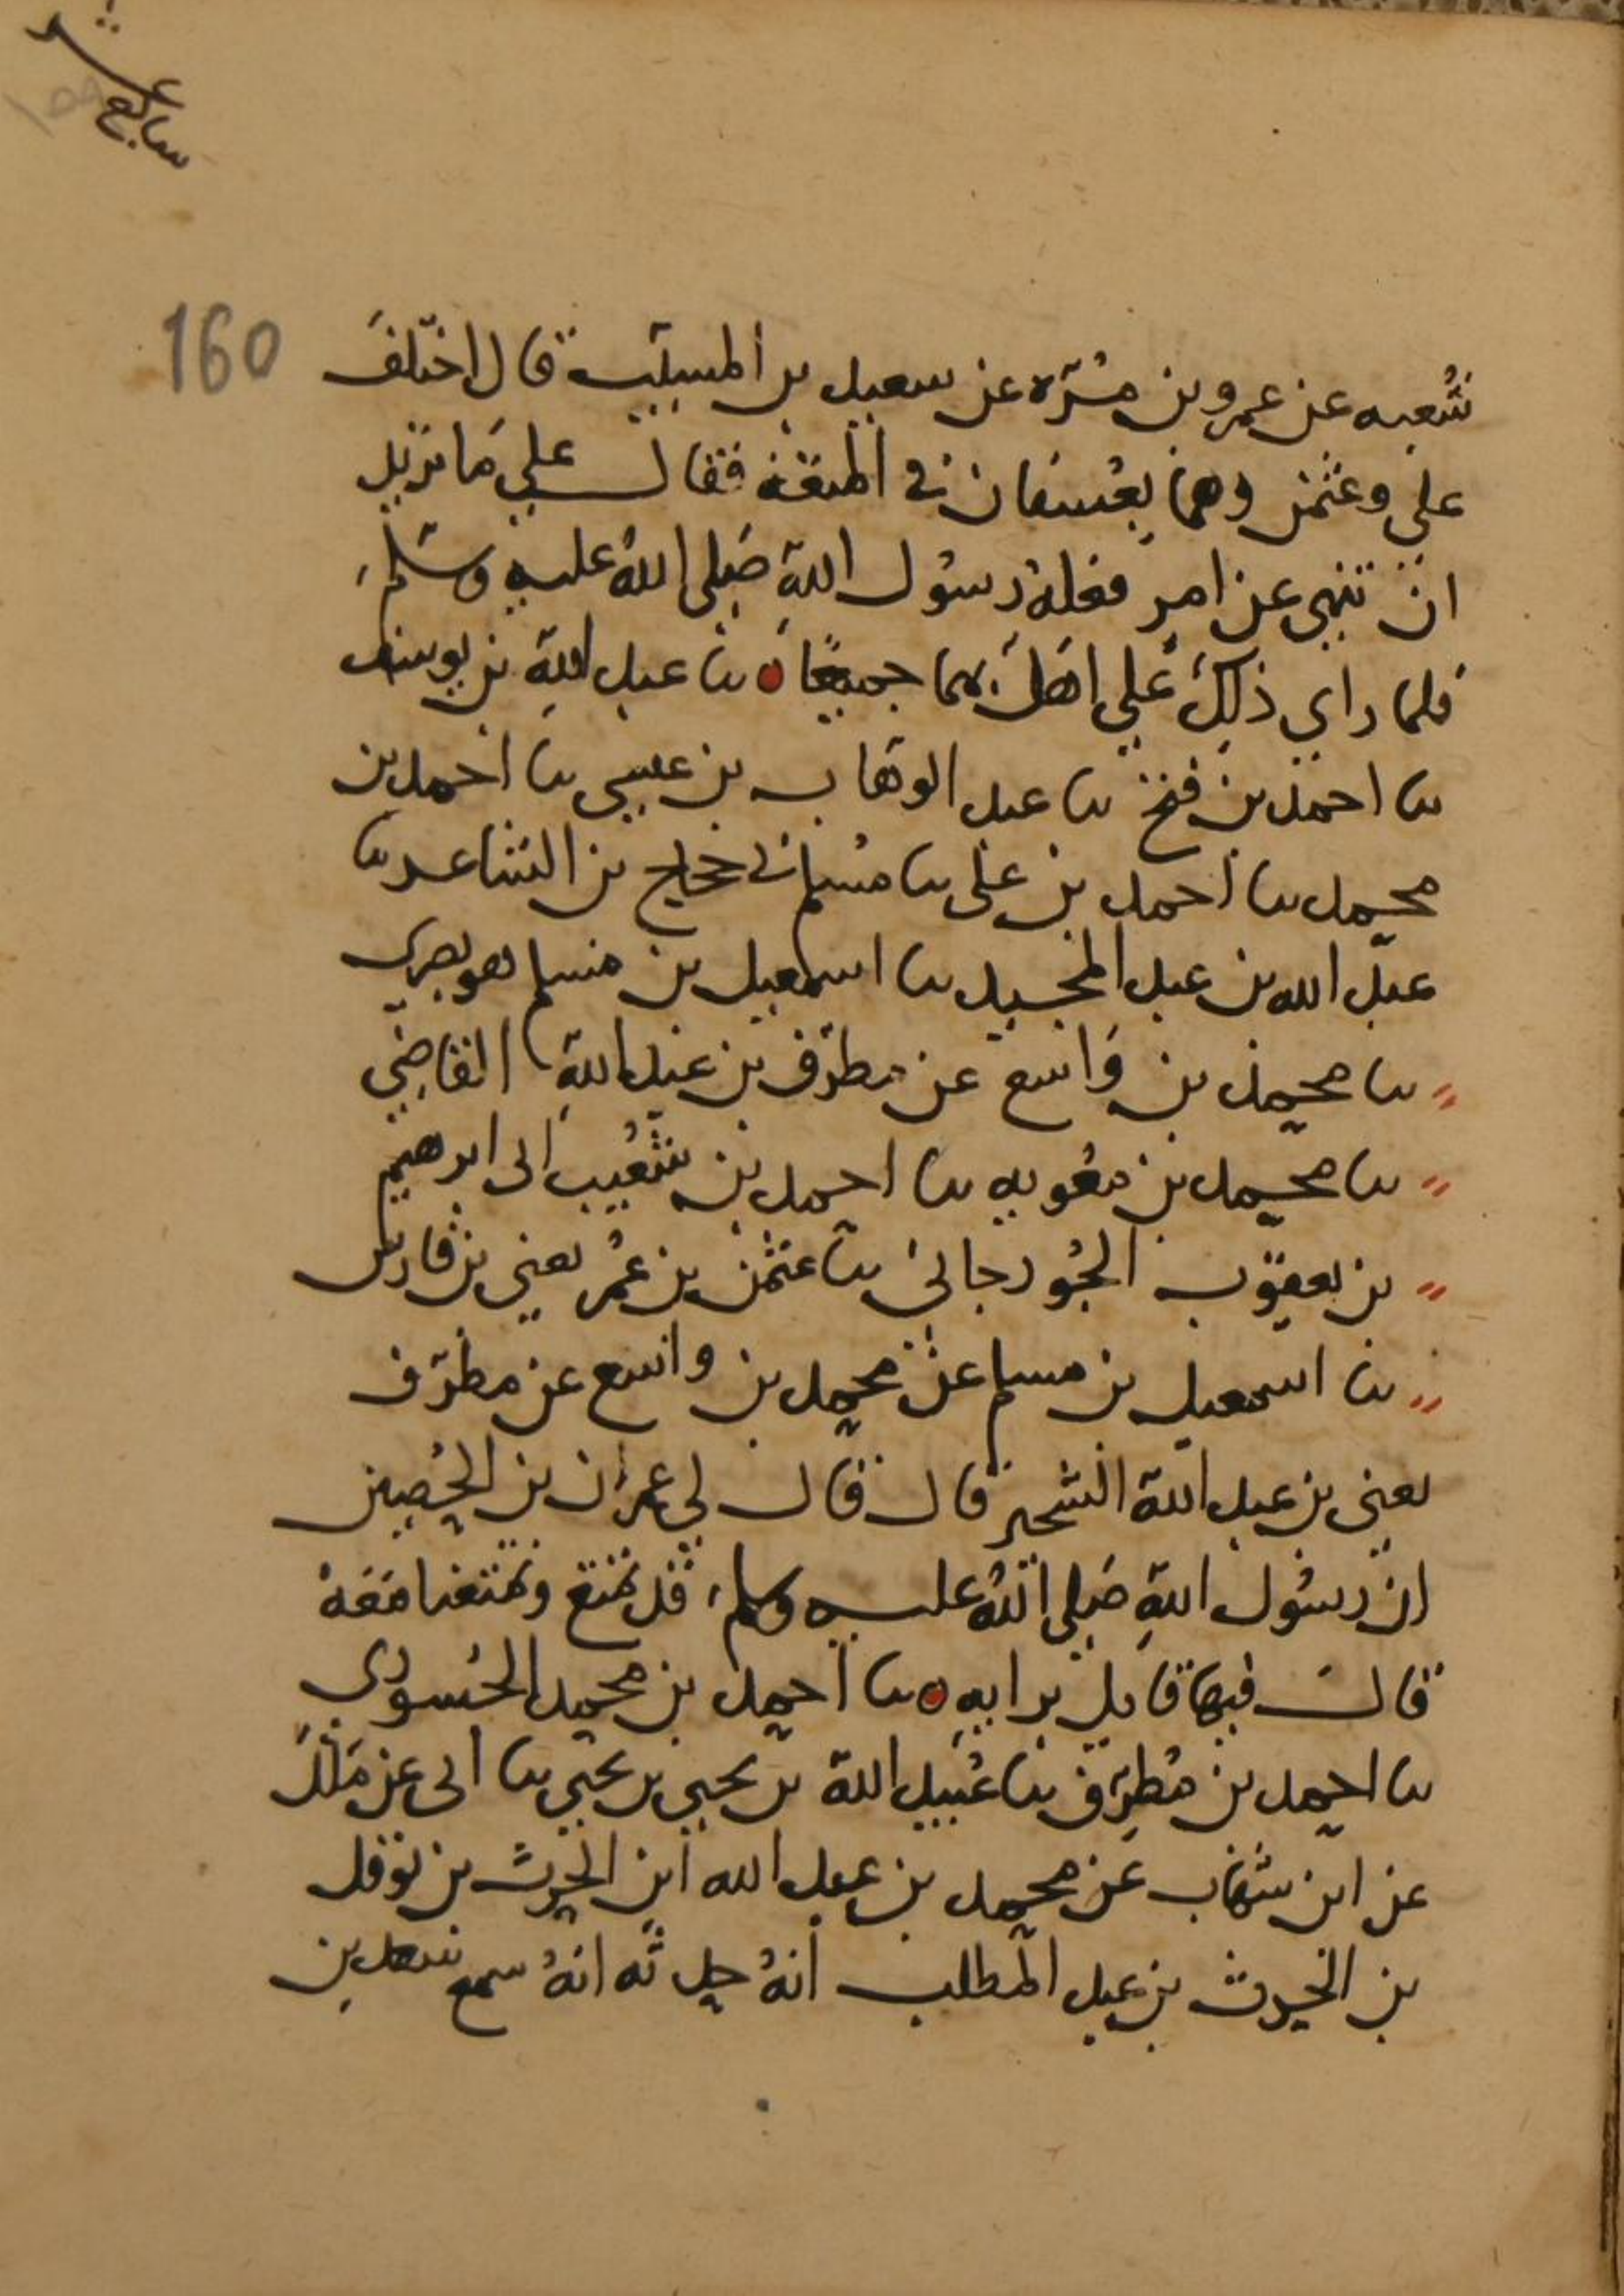 سابع عشر
159
160
شعبه عن عمرو بن مُرّه عن سعيد بن المسيّب قال اختلفَ
علي وعثمٰن وهما بعُسفان في المتعة فقال علي مَا تريد
ان تنهى عن امرٍ فعلهُ رسُول اللهِ صَلى اللهُ عليه وسَلم
فلما راي ذلِكَ عَلي اهَلَّ بهما جميعًا ٥ نا عبد اللهِ بن يوسف
نا احمد بن فتح نا عبد الوهّاب بن عيسى نا احمد بن
محمد نا احمد بن علي نا مُسلم ني حجاج بن الشاعر نا
عبَيد الله بن عبد المجيد نا اسمعيل بن مسلم هو بصري
نا محمد بن وَاسع عن مطرّف بن عبد اللهِ القاضِي
نا محمد بن معٰويه نا احمد بن شُعَيب انى ابرهيم
بن يعقوب الجُورجاني نا عثمٰن بن عُمَر يعني بن فارس
نا اسمعيل بن مسلم عن محمد بن واسع عن مطرّف
يعني بن عبد الله الشخير قال قال لي عمرٰان بن الحُصين
ان رسُول اللهِ صَلى اللهُ عليه وسلم قد تمتع وتمتعنا مَعَهُ
قالَ فيها قايل برايهِ ٥ نا احمد بن محمد الحُسوري
نا احمد بن مُطرّف نا عُبَيد الله بن يحيى بن يحيى نا ابى عن مَالك
عن ابن شهاب عن محمد بن عبد الله ابن الحٰرث بن نوفل
بن الحٰرث بن عبد المطلب انهُ حدثه انهُ سمع سعد بن